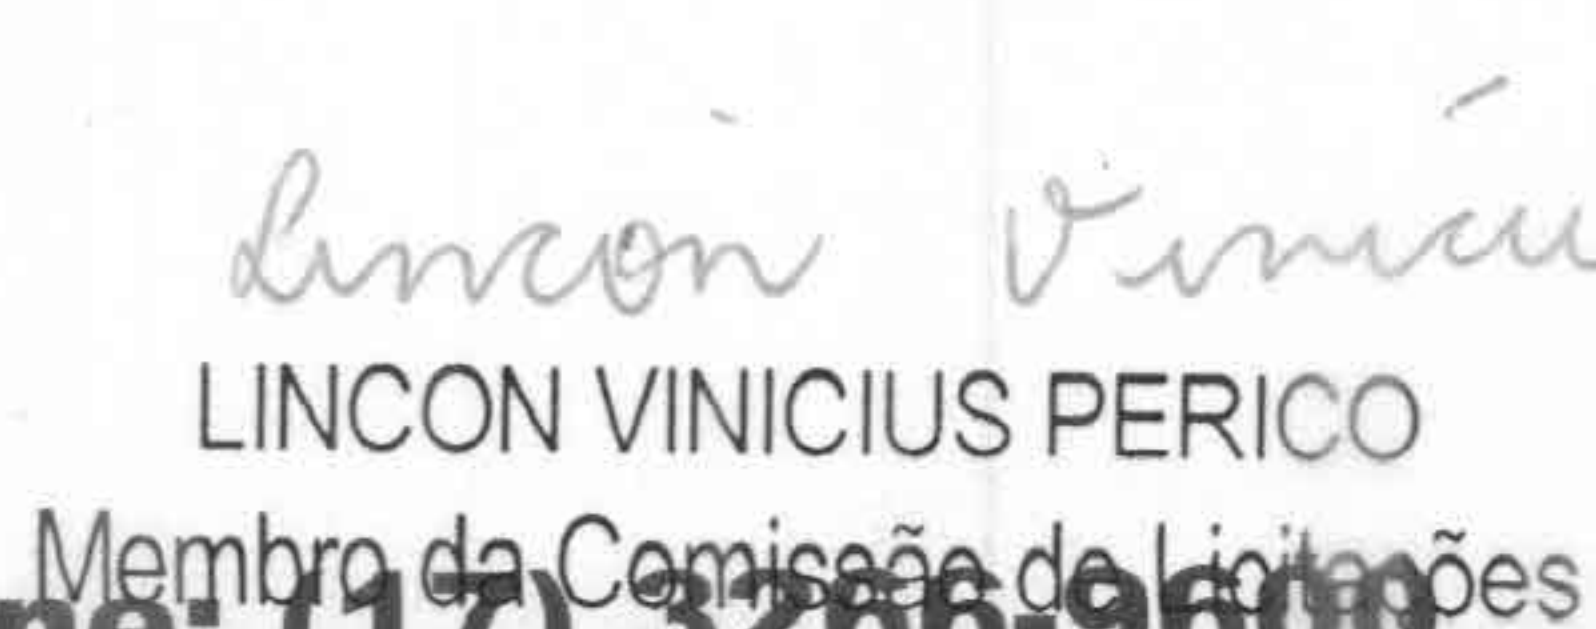 Lincon Viniciu
LINCON VINICIUS PERICO
Membro da Comissão de Licitações
ne: (17) 3266-9600